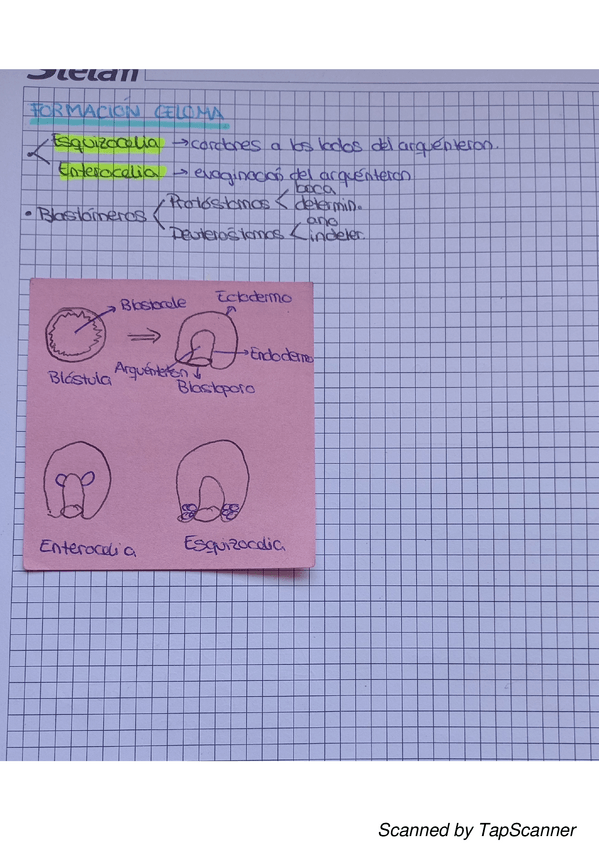 FORMACIÓN CELOMA
Esquizocelia → cordones a los lados del arquénteron.
Enterocelia → evaginació del arquénteron
• Blastómeros
Protóstomos
boca
determin.
Deuteróstomos
ano
indeter.
Blastocele
Ectodermo
Endodermo
Arquénteron
Blástula
Blastoporo
Enterocelia
Esquizocelia
Scanned by TapScanner